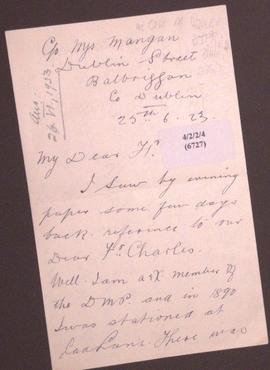 C/o Mrs Mangan
Dublin Street
Balbriggan
Co Dublin
25th 6. 23
Ans:
26.VI.1923
4/2/2/4
(6727)
My Dear Fr
I saw by evening
paper some few days
back reference to our
Dear Fr. Charles.
Well I am a ex member of
the D.M.P. and in 1890
I was stationed at
There was